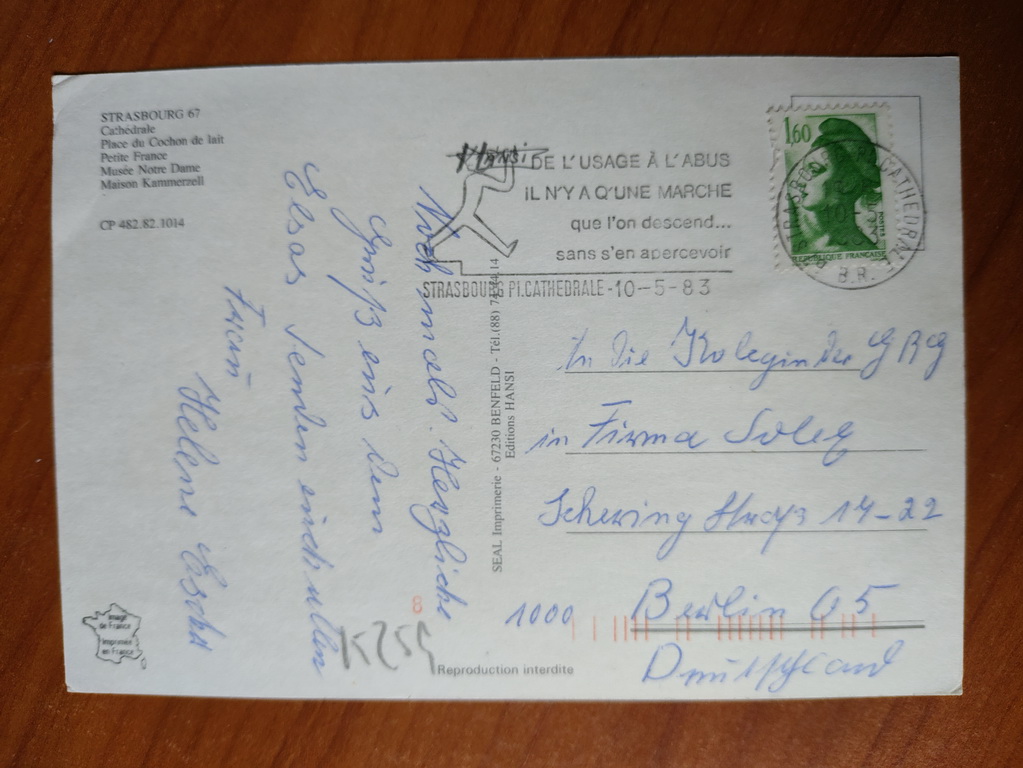 STRASBOURG 67
Cathédrale
Place du Cochon de lait
Petite France
Musée Notre Dame
Maison Kammerzell
CP 482.82.1014
HANSI
DE L'USAGE À L'ABUS
IL N'Y A Q'UNE MARCHE
que l'on descend...
sans s'en apercevoir
STRASBOURG Pl.CATHEDRALE -10-5-83
1,60
POSTES
REPUBLIQUE FRANÇAISE
STRASBOURG CATHEDRALE
B.R.
Nochmals Herzliche
Grüß aus dem
Elsas senden
Helene
SEAL Imprimerie - 67230 BENFELD - Tél.(88) 74.14
Editions HANSI
in Die Kolegin der GBG
in Firma
Schering Straße 14-22
1000 Berlin 65
Deutschland
8
15259
Image
de France
Imprimée
en France
Reproduction interdite